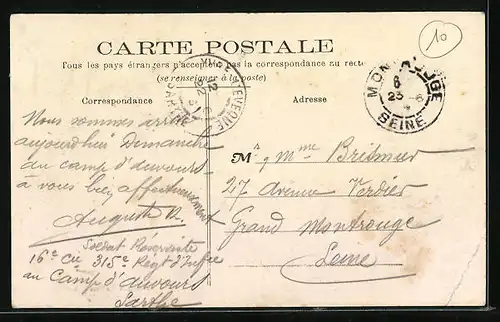 10
CARTE POSTALE
Tous les pays étrangers n'acceptent pas la correspondance au recto
(se renseigner à la poste)
Correspondance
Adresse
MONTROUGE
6
23 - 6
SEINE
YVRÉ L'ÉVÊQUE
SARTHE
Nous sommes arrivé
aujourdhui Dimanche
au camp d'auvours
à vous bien affectueusement
Auguste
Soldat Réserviste
16e Cie 315e Régt d'Infrie
au Camp d'auvours
Sarthe
Mr & Mme
27 Avenue Verdier
Grand Montrouge
Seine